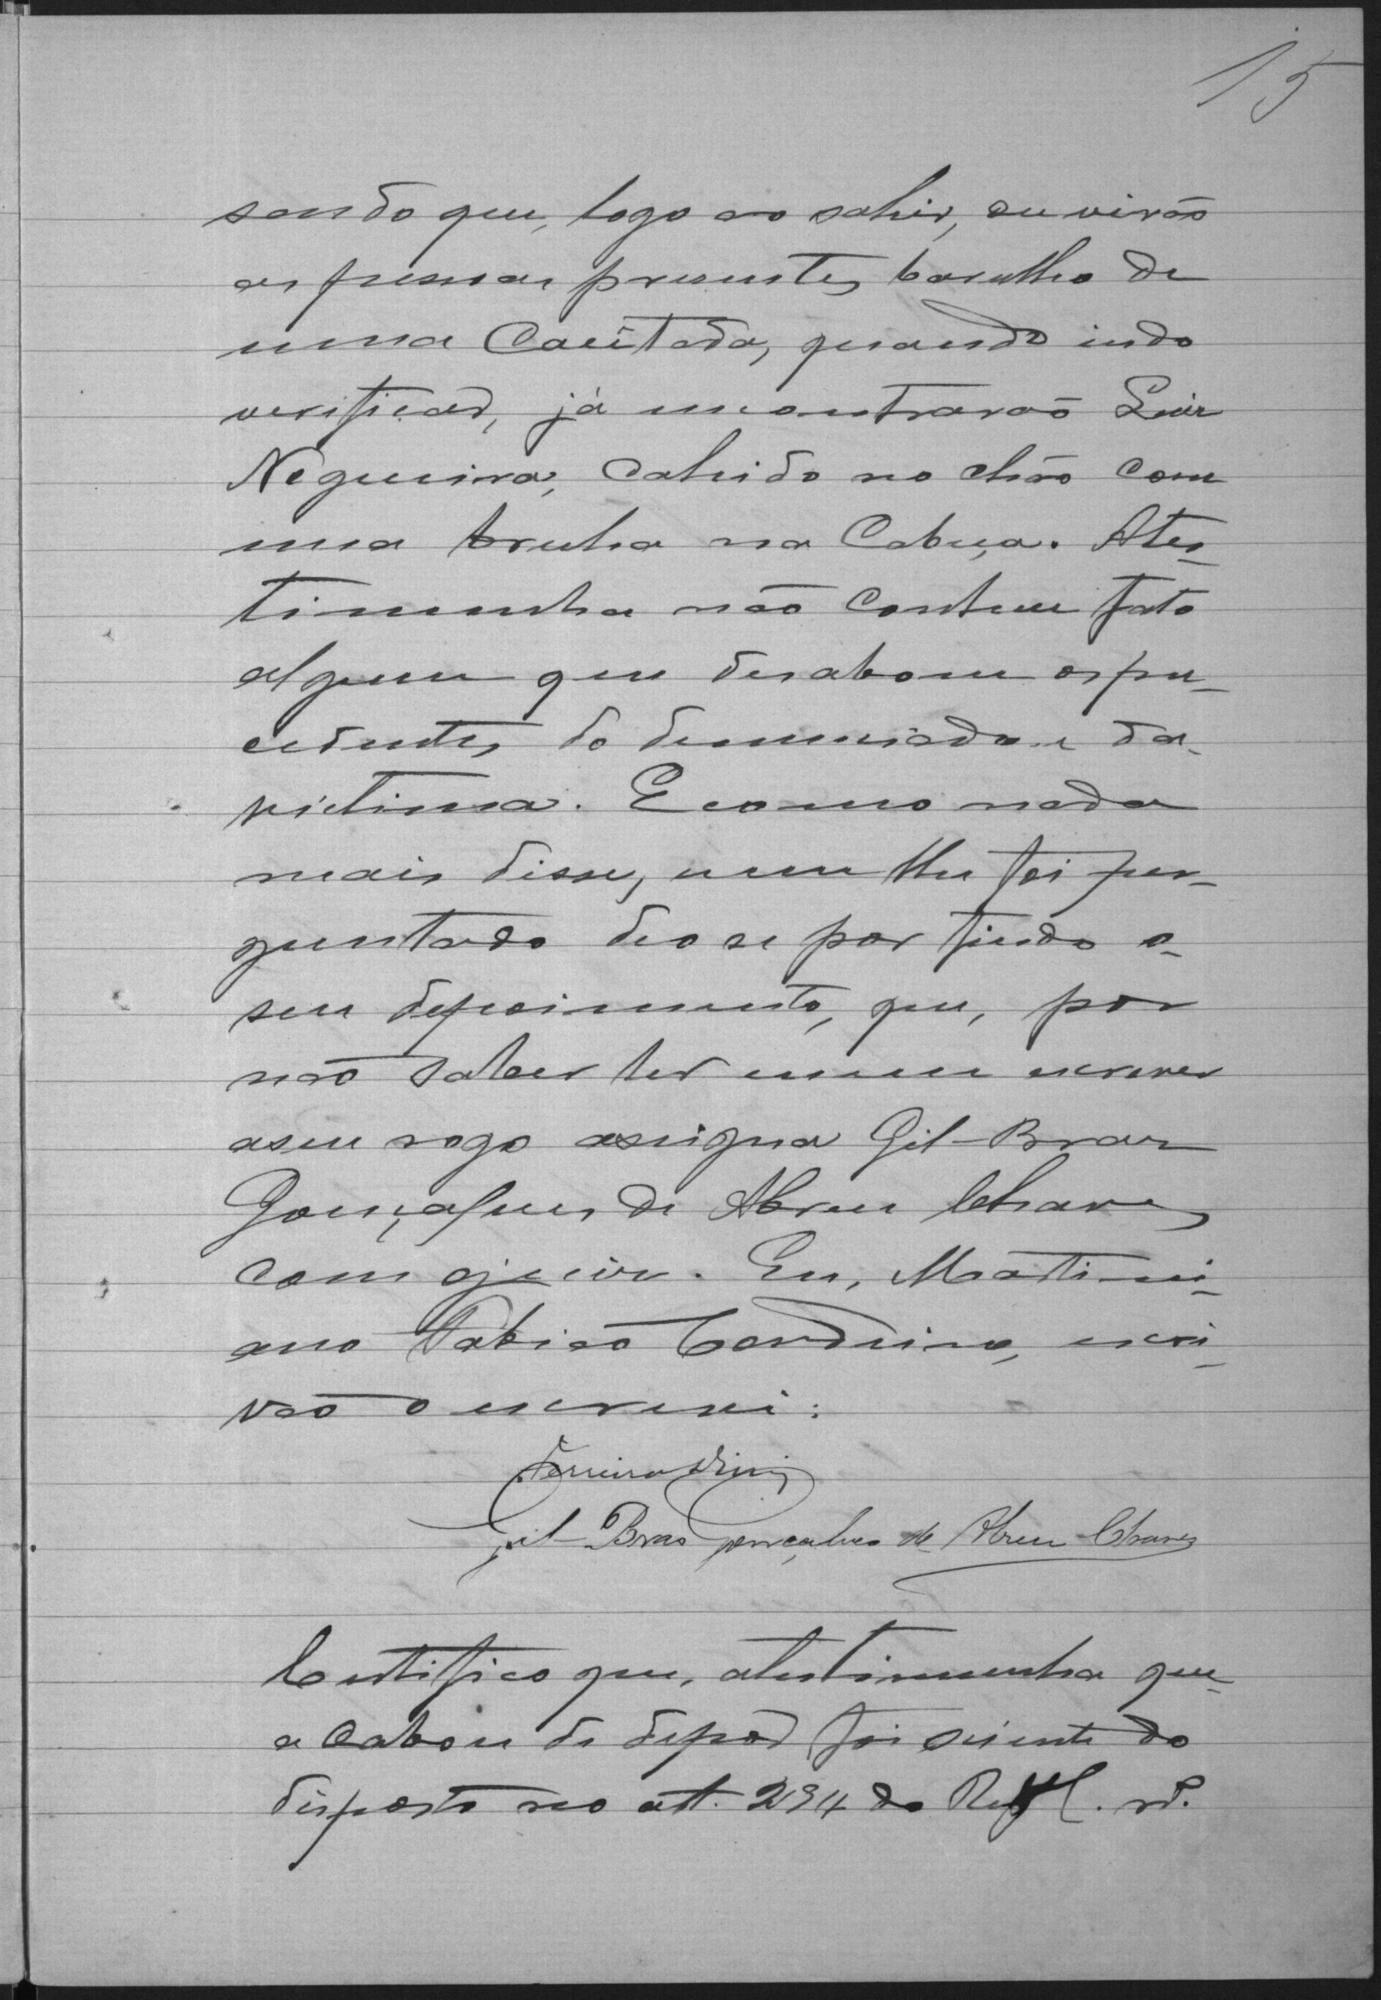 15
sendo que, logo ao sahir, ouvirão
as pessoas presentes barulho de
uma Cacêtada, quando indo
verificar, já encontrarão Luiz
Negueira, cahido no chão com
uma brecha na Cabeça. Ates-
timunha não conhece fato
algum que desabone os pre-
cedentes do denunciado e da
victima. E como nada
mais disse, nem lhe foi per-
guntado deo se por findo o
seu depoimento, que, por
não saber ler e nem escrever
a seu rogo assigna Gil-Braz
Gonçalves de Abreu Chaves
com o juiz. Eu, Martini-
ano Fabião Cardrino, escri-
vão o escrevi:
Ferreira Diniz
Gil Bras Gonçalves de Abreu Chaves
Certifico que, a testimunha que
acabou de depôr foi sciente do
disposto no art. 294 do Reg